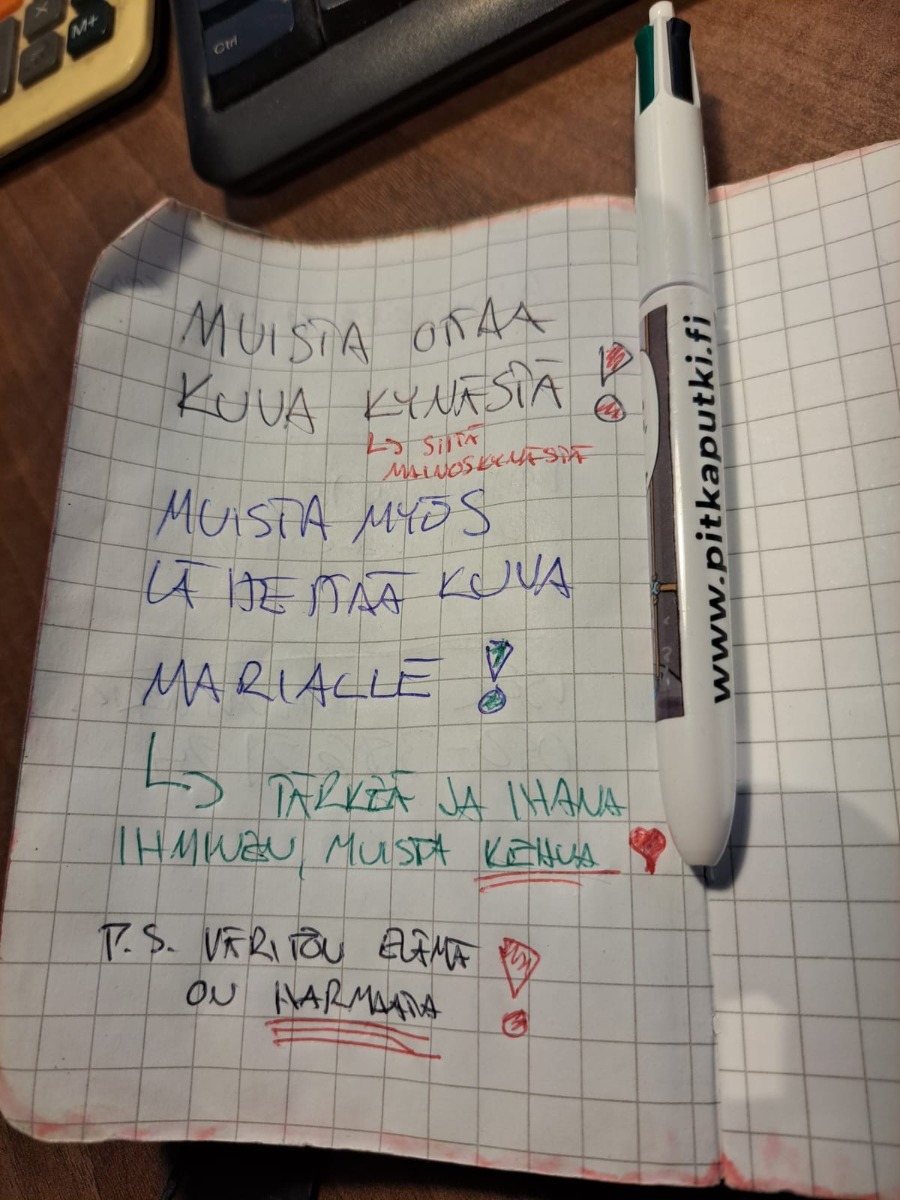 M+
X
Ctrl
MUISTA OTTAA
KUVA KYNÄSTÄ !
↳ SIITÄ
MAINOSKYNÄSTÄ
MUISTA MYÖS
LÄHETTÄÄ KUVA
MARIALLE !
↳ TÄRKEÄ JA IHANA
IHMINEN, MUISTA KEHUA ♥
P.S. VÄRITÖN ELÄMÄ
ON HARMAATA !
www.pitkaputki.fi